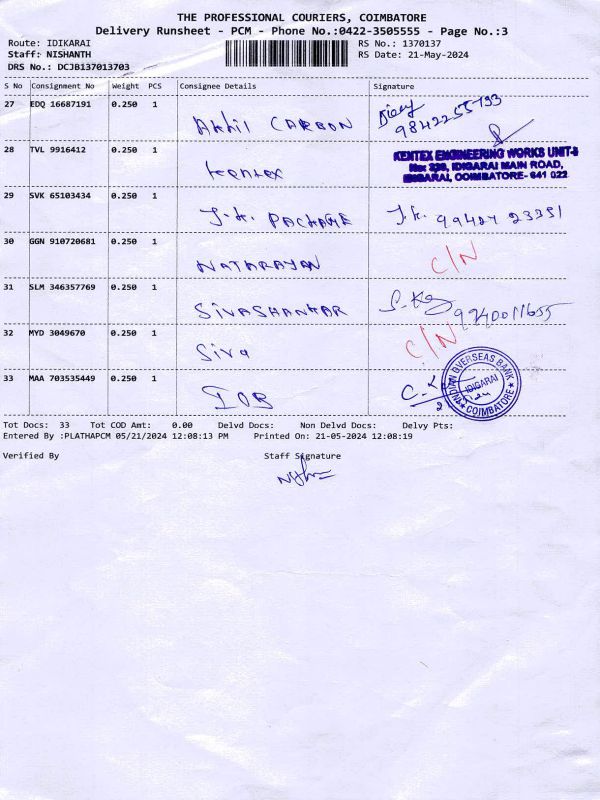 THE PROFESSIONAL COURIERS, COIMBATORE
Delivery Runsheet - PCM - Phone No.:0422-3505555 - Page No.:3
Route: IDIKARAI RS No.: 1370137
Staff: NISHANTH RS Date: 21-May-2024
DRS No.: DCJB137013703
S No Consignment No Weight PCS Consignee Details Signature
27 EDQ 16687191 0.250 1
Akhil CARBON 9842255193
28 TVL 9916412 0.250 1
Kentex
KENTEX ENGINEERING WORKS UNIT-
IDIGARAI MAIN ROAD,
IDIGARAI, COIMBATORE- 641 022
29 SVK 65103434 0.250 1
J.K. PACKAGE J.K. 99427 23351
30 GGN 910720681 0.250 1
NATARAYAN C/N
31 SLM 346357769 0.250 1
SIVASHANKAR 9940011655
32 MYD 3049670 0.250 1
Siva C/N
33 MAA 703535449 0.250 1
IOB
INDIAN OVERSEAS BANK
IDIGARAI
COIMBATORE
Tot Docs: 33 Tot COD Amt: 0.00 Delvd Docs: Non Delvd Docs: Delvy Pts:
Entered By :PLATHAPCM 05/21/2024 12:08:13 PM Printed On: 21-05-2024 12:08:19
Verified By Staff Signature